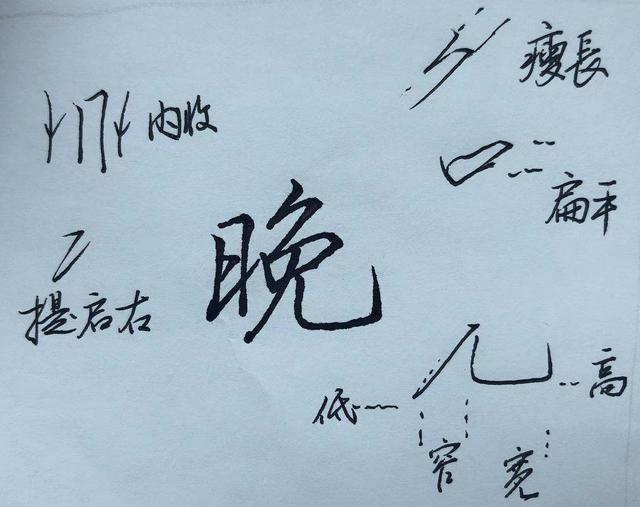 瘦長
内收
扁平
晚
提启右
低
高
窄
宽